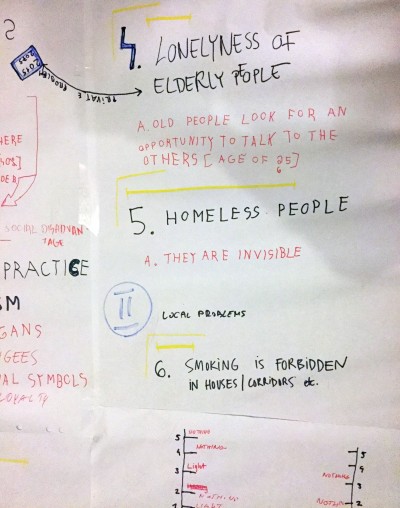 4. LONELYNESS OF
ELDERLY PEOPLE
PRIVATE PROBLEM
2015
A. OLD PEOPLE LOOK FOR AN
OPPORTUNITY TO TALK TO THE
OTHERS [AGE OF 65]
5. HOMELESS PEOPLE
A. THEY ARE INVISIBLE
II LOCAL PROBLEMS
6. SMOKING IS FORBIDDEN
IN HOUSES/CORRIDORS etc.
HERE
SOCIAL DISADVAN-
TAGE
PRACTICE
SM
GANS
GEES
AL SYMBOLS
LOYALTY
5 NOTHING
4 NOTHING
3 Light
2 NOTHING
1 LIGHT
5
4
3 NOTHING
2 NOTHIN